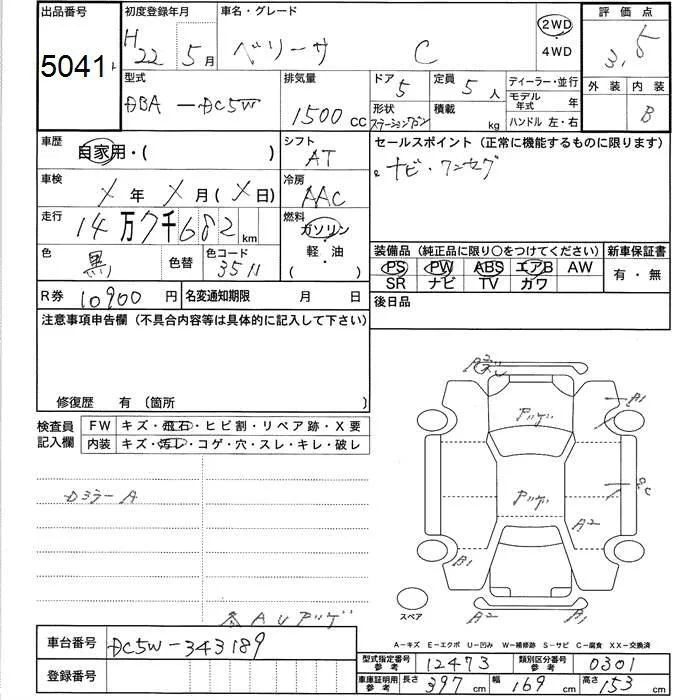 出品番号 初度登録年月 車名・グレード 評価点
5041 H22年 5月 ベリーサ C 2WD・4WD 3.5
型式 排気量 ドア 5 定員 5人 ディーラー・並行 外装 内装
DBA-DC5W 1500cc 形状 ステーションワゴン 積載 kg モデル年式 年 B
ハンドル 左・右
車歴 自家用・( ) シフト AT セールスポイント(正常に機能するものに限ります)
ナビ・ワンセグ
車検 X年 X月(X日) 冷房 AAC
走行 14万7千682km 燃料 ガソリン・軽・油・( )
色 黒 色替 色コード 3511
装備品(純正品に限り○をつけてください) 新車保証書
PS PW ABS エアB AW 有・無
SR ナビ TV カワ
R券 10900円 名変通知期限 月 日 後日品
注意事項申告欄(不具合内容等は具体的に記入して下さい)
修復歴 有(箇所 )
検査員記入欄 FW キズ・飛石・ヒビ割・リペア跡・X要
内装 キズ・汚レ・コゲ・穴・スレ・キレ・破レ
Dミラー A
A1
アッゲ
アッゲ
A2
B1
A2 A1
スペア
AUアッゲ
A-キズ E-エクボ U-凹み W-補修跡 S-サビ C-腐食 XX-交換済
車台番号 DC5W-343189
登録番号
型式指定番号参考 12473 類別区分番号参考 0301
車庫証明用参考 長さ 397cm 幅 169cm 高さ 153cm